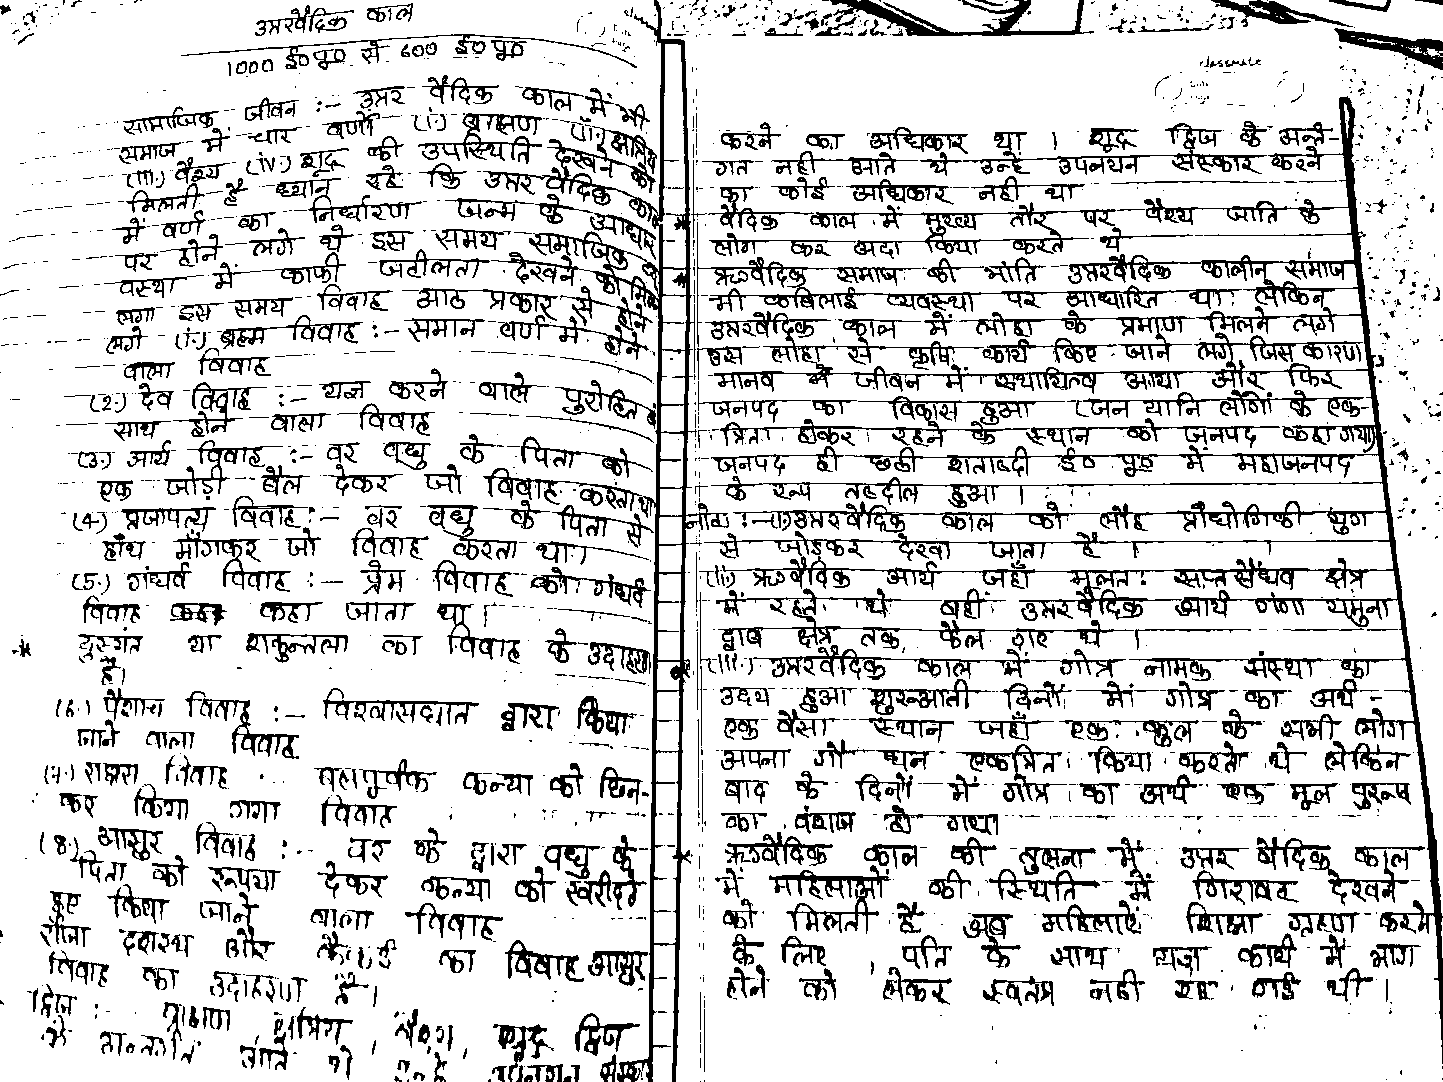 उत्तरवैदिक काल
1000 ई० पू० से 600 ई० पू०
सामाजिक जीवन :- उत्तर वैदिक काल में भी
समाज में चार वर्णों (i.) ब्राह्मण (ii.) क्षत्रिय
(iii.) वैश्य (iv.) शूद्र की उपस्थिति देखने को
मिलती है ध्यान रहे कि उत्तर वैदिक काल
में वर्ण का निर्धारण जन्म के आधार
पर होने लगे थे इस समय समाजिक व्य
वस्था में काफी जटीलता देखने को मिल
लगा इस समय विवाह आठ प्रकार से होने
लगे (i.) ब्रह्म विवाह :- समान वर्ण में होने
वाला विवाह
(2.) देव विवाह :- यज्ञ करने वाले पुरोहित के
साथ होने वाला विवाह
(3.) आर्य विवाह :- वर वधु के पिता को
एक जोड़ी बैल देकर जो विवाह करता था
(4.) प्रजापत्य विवाह :- वर वधु के पिता से
हाँथ माँगकर जो विवाह करता था।
(5.) गंधर्व विवाह :- प्रेम विवाह को गंधर्व
विवाह कहा जाता था।
दुस्यंत था शकुन्तला का विवाह के उदाहरण
है।
(6.) पैशाच विवाह :- विश्वासघात द्वारा किया
जाने वाला विवाह
(7.) राक्षस विवाह बलपूर्वक कन्या को छिन-
कर किया गया विवाह
(8.) आसुर विवाह :- वर के द्वारा वधु के
पिता को रूपया देकर कन्या को खरीदते
हुए किया जाने वाला विवाह
राजा दशरथ और कैकई का विवाह आसुर
विवाह का उदाहरण है।
द्विज :- ब्राह्मण क्षत्रिय, वैश्य, शूद्र द्विज
के अन्तर्गत आते थे उन्हे उपनयन संस्कार
classmate
करने का अधिकार था। शूद्र द्विज के अन्त-
गत नही आते थे उन्हे उपनयन संस्कार करने
का कोई अधिकार नही था
* वैदिक काल में मुख्य तौर पर वैश्य जाति के
लोग कर अदा किया करते थे
* ऋग्वैदिक समाज की भांति उत्तरवैदिक कालीन समाज
भी कबिलाई व्यवस्था पर आधारित था लेकिन
उत्तरवैदिक काल में लोहा के प्रमाण मिलने लगे
इस लोहा से कृषि कार्य किए जाने लगे जिस कारण
मानव में जीवन में स्थायित्व आया और फिर
जनपद का विकास हुआ (जन यानि लोगों के एक-
त्रित होकर रहने के स्थान को जनपद कहा गया)
जनपद ही छठी शताब्दी ई० पू० में महाजनपद
के रूप तब्दील हुआ।
नोट :- (i) उत्तरवैदिक काल को लौह प्रौधोगिकी युग
से जोड़कर देखा जाता है।
(ii) ऋग्वैदिक आर्य जहाँ मूलत: सप्त सैंधव क्षेत्र
में रहते थे वहीं उत्तरवैदिक आर्य गंगा यमुना
द्वाब क्षेत्र तक फैल गए थे।
* (iii.) उत्तरवैदिक काल में गोत्र नामक संस्था का
उदय हुआ शुरूआती दिनों में गोत्र का अर्थ -
एक वैसा स्थान जहाँ एक कुल के सभी लोग
अपना गौ धन एकत्रित किया करते थे लेकिन
बाद के दिनों में गोत्र का अर्थ एक मूल पुरूष
का वंशज हो गया
* ऋग्वैदिक काल की तुलना में उत्तर वैदिक काल
में महिलाओं की स्थिति में गिरावट देखने
को मिलती है अब महिलाएं शिक्षा ग्रहण करने
के लिए, पति के साथ यज्ञ कार्य में भाग
लेने को लेकर स्वतंत्र नही रह गई थी।